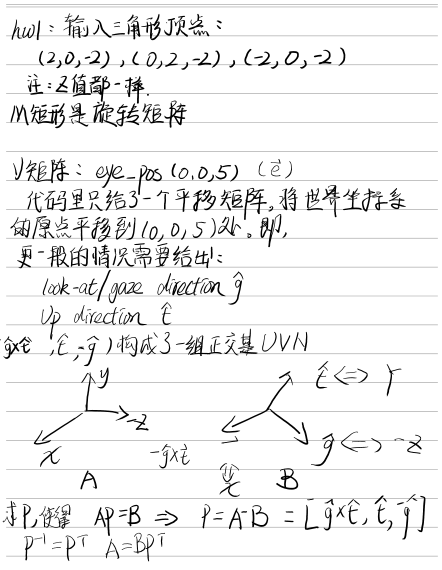 hw1：输入三角形顶点：
(2,0,-2),(0,2,-2),(-2,0,-2)
注：Z值都一样.
M矩形是旋转矩阵
V矩阵：eye_pos(0,0,5) (e⃗)
代码里只给了一个平移矩阵。将世界坐标系
的原点平移到(0,0,5)处。即,
更一般的情况需要给出：
look-at/gaze direction ĝ
Up direction t̂
ĝxt̂,t̂,-ĝ)构成了一组正交基UVN
y
-z
x
A
t̂ <=> Y
ĝ <=> -z
-ĝxt̂
x
B
求P,使得 AP=B => P=A⁻B = [ĝxt̂, t̂, -ĝ]
P⁻¹=Pᵀ A=BPᵀ